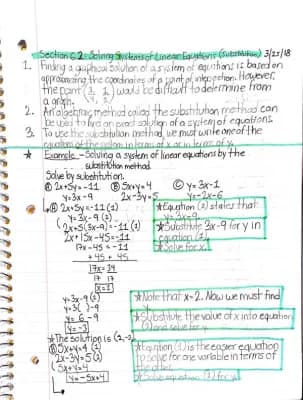 Section 6.2 - Solving Systems of Linear Equations (Substitution) 3/23/18
1. Finding a graphical solution of a system of equations is based on
approximating the coordinates of a point of intersection. However,
the point would be difficult to determine from
a graph.
2. An algebraic method called the substitution method can
be used to find an exact solution of a system of equations.
3. To use the substitution method, we must write one of the
equations of the system in terms of x or in terms of y.
★ Example - Solving a system of linear equations by the
substitution method
Solve by substitution.
Ⓐ 2x+5y=-11 Ⓑ 5x+y=4 Ⓒ y=3x-1
y=3x-9 2x-3y=5 y=2x-6
Ⓐ 2x+5y=-11 (1)
y=3x-9 (2)
2x+5(3x-9)=-11 (1)
2x+15x-45=-11
17x-45=-11
+45 +45
17x=34
17 17
★ Equation (2) states that
y=3x-9
★ Substitute 3x-9 for y in
equation (1)
★ Solve for x.
y=3x-9 (2)
y=6-9
y=-3
★ Note that x=2. Now we must find
★ Substitute the value of x into equation
(2) and solve for y.
★ The solution is
Ⓑ 5x+y=4 (1)
2x-3y=5 (2)
5x+y=4
y=-5x+4
★ Equation (1) is the easier equation
to solve for one variable in terms of
the other.
★ Solve equation (1) for y.